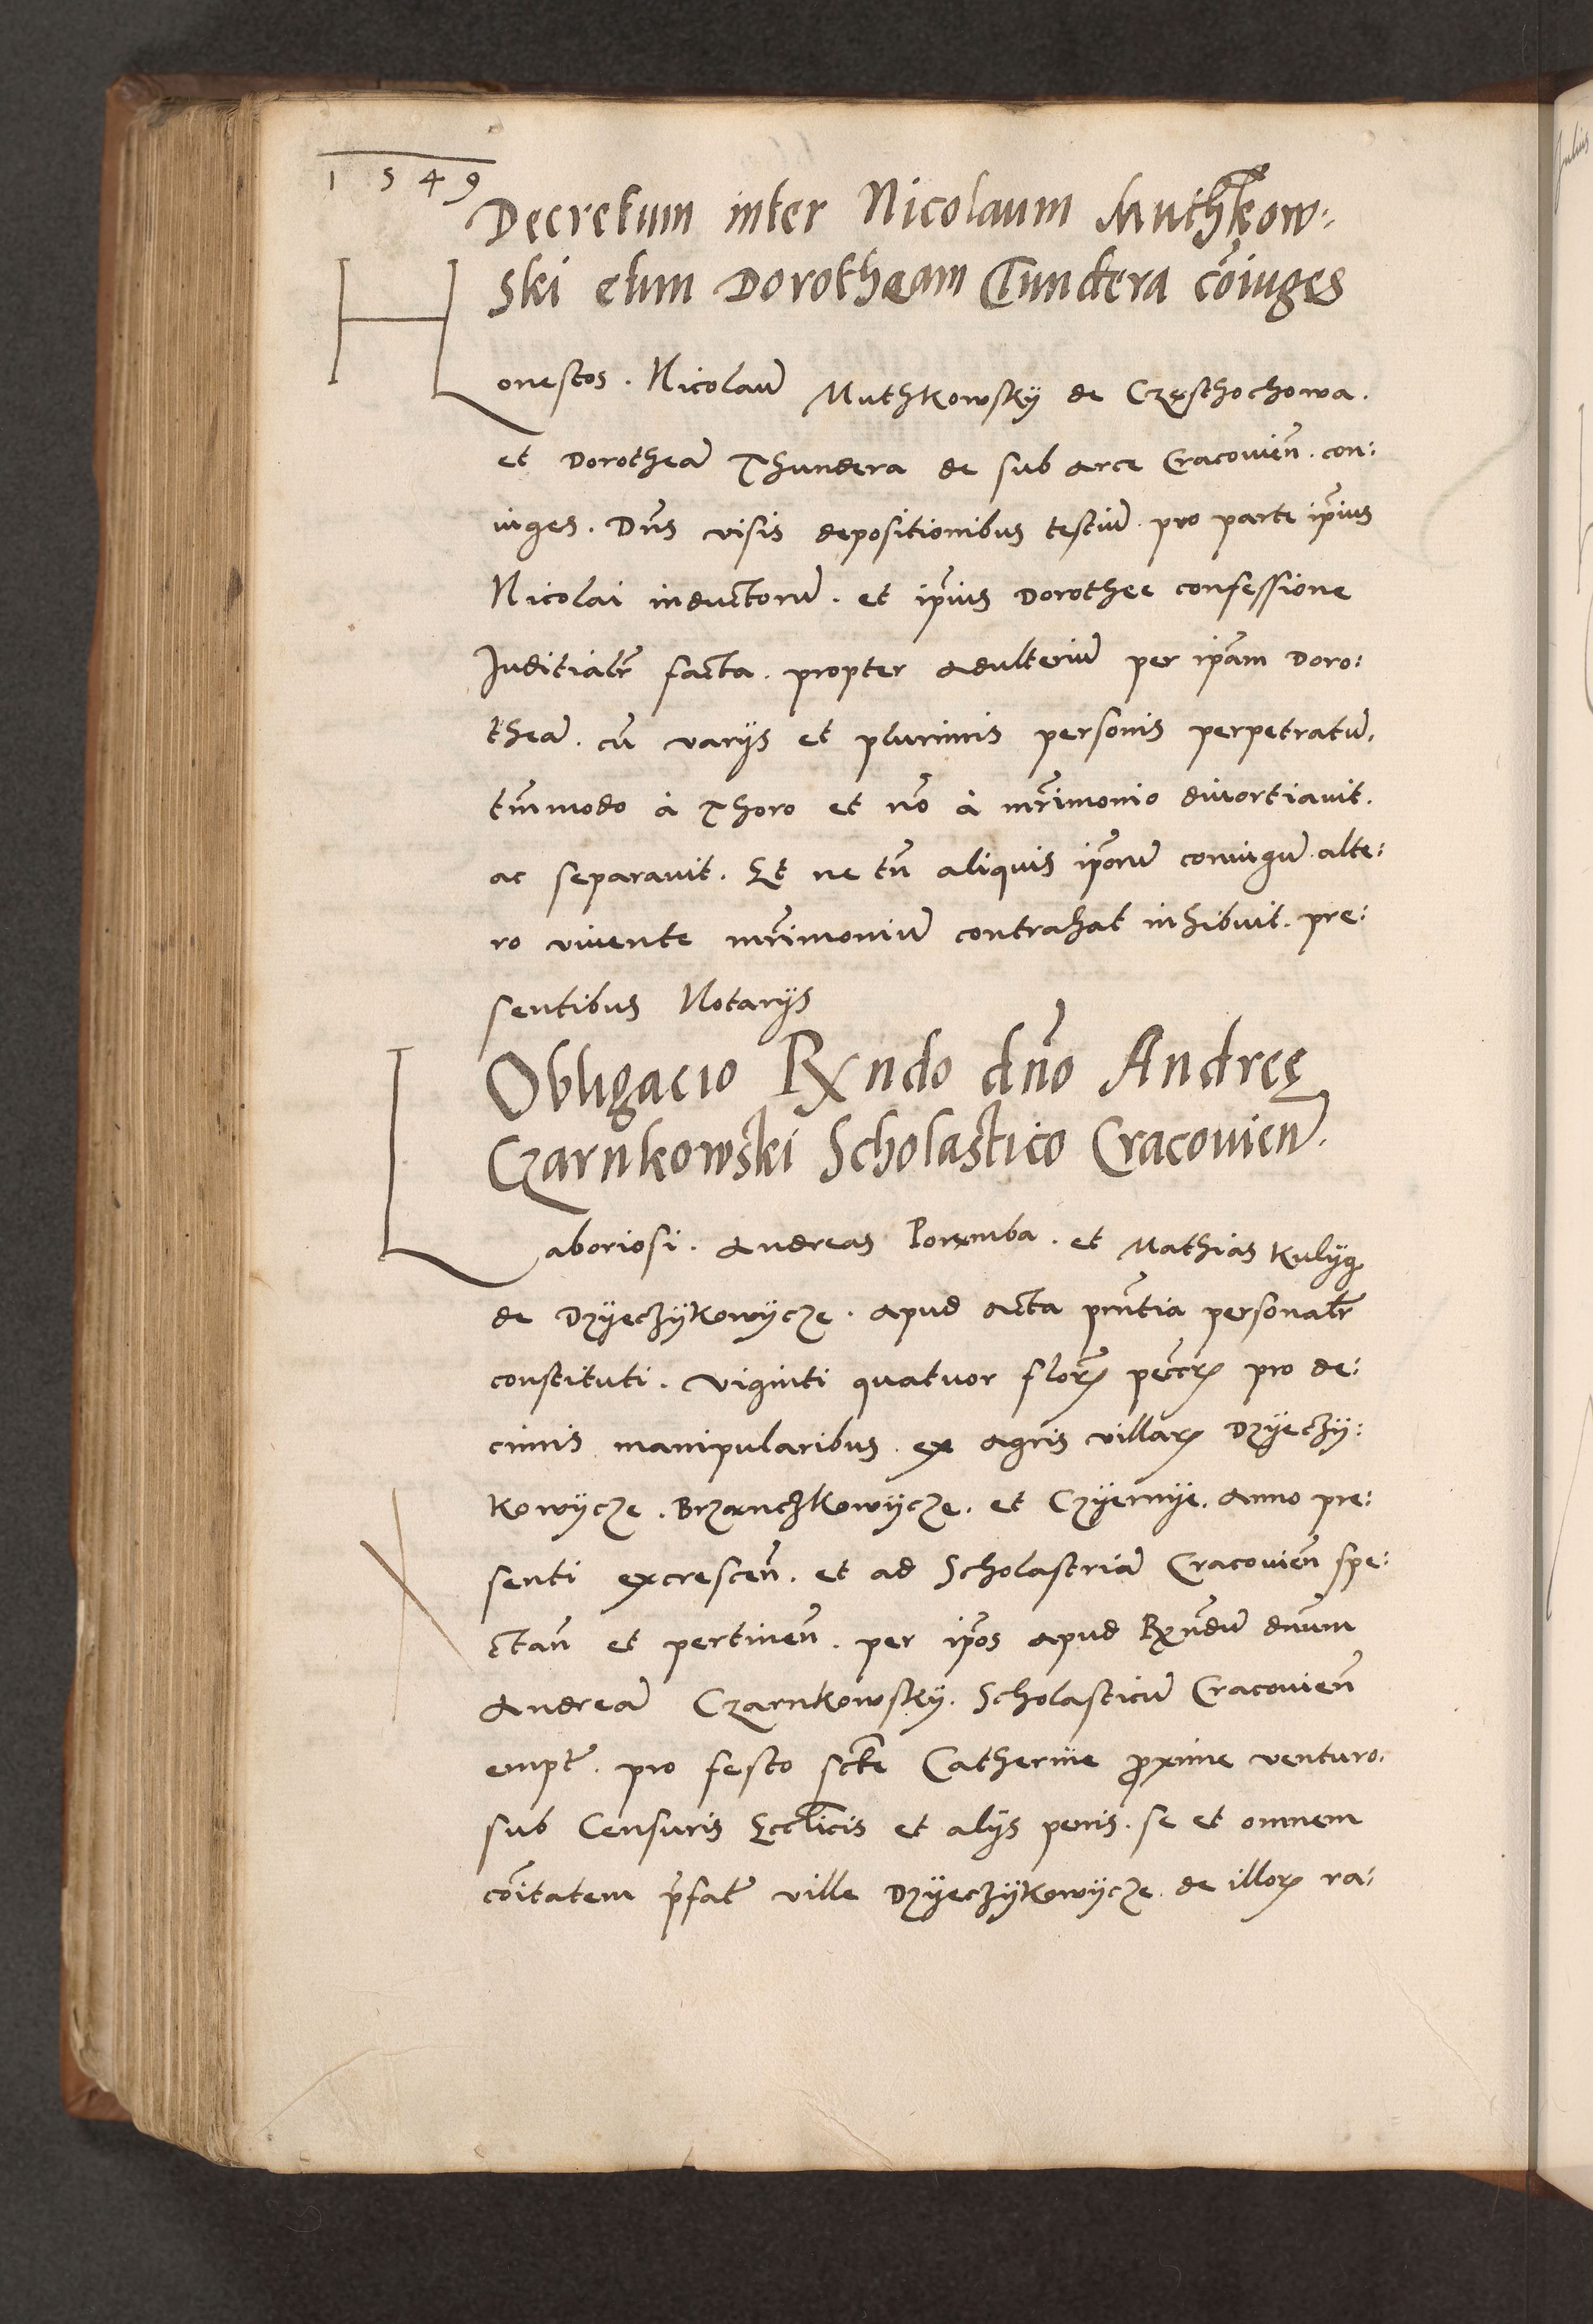 1549
Decretum inter Nicolaum Muthkow:
ski etum Dorotheam Tundera cõiuges
Honestos. Nicolaũ Muthkowskÿ de Częsthochowa.
et Dorotheã Thundera de sub arce Cracovieñ. con:
iuges. Dñs visis depositionibus testiũ. pro parte ip̃ius
Nicolai inductorũ. et ip̃ius Dorothee confessione
Juditialr̃ facta. propter adulteriũ per ip̃am Doro:
theã. cũ varijs et plurimis personis perpetratũ.
tm̃modo à Thoro et nõ à mr̃imonio divortiavit.
ac separavit. Et ne tñ aliquis ip̃orũ coniugũ alte:
ro vivente mr̃imoniũ contrahat inhibuit. pre:
sentibus Notarijs
Obligacio Rx̃ndo dño Andreę
Czarnkowski Scholastico Cracovieñ.
Laboriosi. Andreas Poręmba. et Mathias Kulÿg
de Dzÿeczÿkowÿcze. apud acta pñtia personalr̃
constituti. viginti quatuor florꝝ pec̃crꝝ pro de:
cimis manipularibus. ex agris villarꝝ Dzÿeczÿ:
kowÿcze. Brzanczkowÿcze. et Czÿernÿe. anno pre:
senti excresceñ. et ad Scholastriã Cracovieñ spe:
ctañ et pertineñ. per ip̃os apud Rx̃ndũ dnũm
Andreã Czarnkowskÿ. Scholasticũ Cracovieñ
empt̃. pro festo sctẽ Catherine p̱xime venturo.
sub Censuris Eccl̃icis et alijs penis. se et omnem
cõitatem p̃fat̃ ville Dzÿeczÿkowÿcze. de illorꝝ ra: